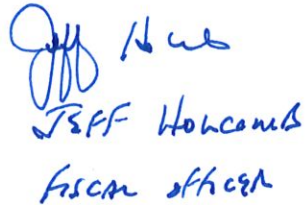 Jeff Holcomb
JEFF HOLCOMB
FISCAL OFFICER